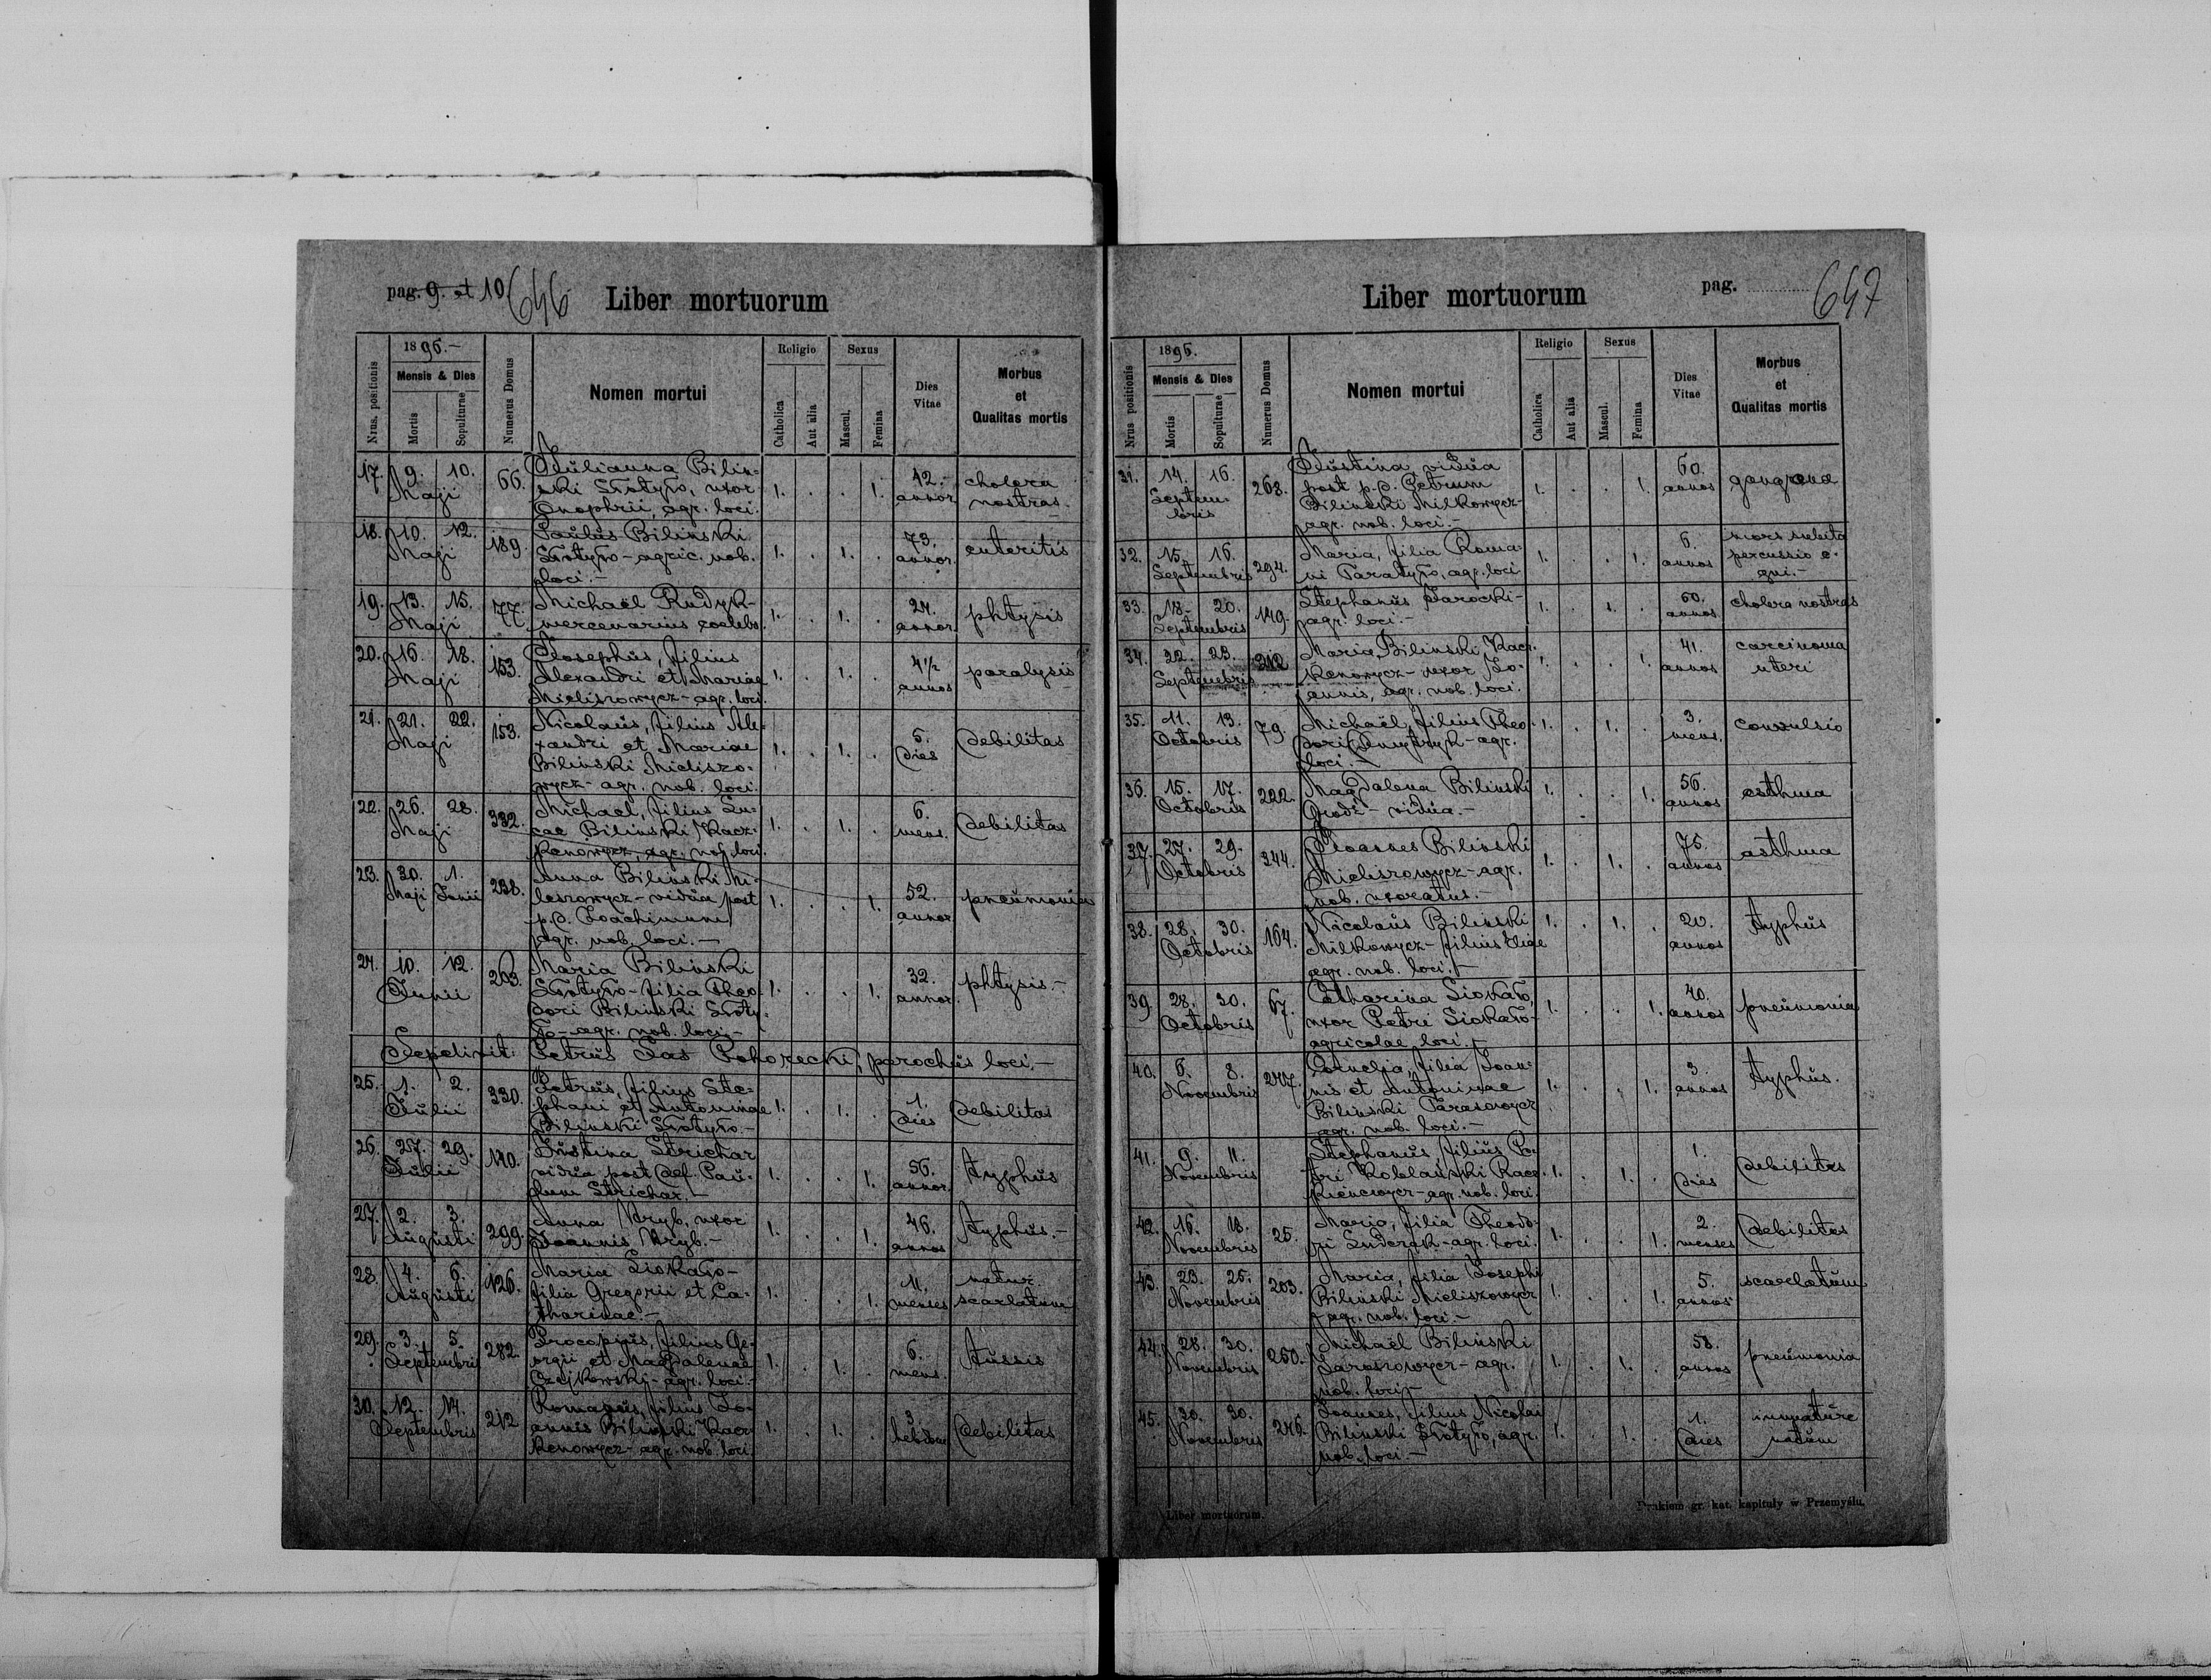 pag. 9. et 10 646
Liber mortuorum
Nrus. positionis
1895.-
Mensis & Dies
Mortis
Sepulturae
Numerus Domus
Nomen mortui
Religio
Catholica
Aut alia
Sexus
Mascul.
Femina
Dies Vitae
Morbus
et
Qualitas mortis
17. 9. 10. Maji 66. Julianna Bilin-
ski uxor 1. . . 1. 42. annor. cholera
Onophrii, agr. loci. nostras.
18. 10. 12. Maji 189. Paulus Bilinski
agric. nob. 1. . 1. . 73. annor. enteritis
loci.-
19. 13. 15. Maji 77. Michaël Rudyk-
mercenarius coelebs. 1. . 1. . 24. annor. phtysis
20. 16. 18. Maji 153. Josephus, filius
Alexandri et Mariae 1. . 1. . 4½ annos paralysis
Mieliszowycz- agr. loci.
21. 21. 22. Maji 153. Nicolaus, filius Ale-
xandri et Mariae 1. . 1. . 5. dies debilitas
Bilinski Mieliszo-
wycz- agr. nob. loci.
22. 26. 28. Maji 332. Michael, filius Lu-
cae Bilinski Kacz- 1. . 1. . 6. mens. debilitas
kenowycz, agr. nob. loci.
23. 30. Maji 1. Junii 238. Anna Bilinski Mi-
leszowycz- vidua post 1. . . 1. 52. annor. pneumonia
p.d. Joachimum
agr. nob. loci.-
24. 10. 12. Junii 263. Maria Bilinski
filia Theo- 1. . . 1. 32. annor. phtysis.-
dori Bilinski
agr. nob. loci.-
Sepelivit: Petrus Jas Pohorecki, parochus loci.-
25. 1. 2. Julii 330. Petrus, filius Ste-
phani et Antoninae 1. . 1. . 1. dies debilitas
Bilinski
26. 27. 29. Julii 140. Justina Strichar
vidua post def. Pau- 1. . . 1. 56. annor. typhus
lum Strichar.-
27. 2. 3. Augusti 299. Anna Hryb, uxor
Joannis Hryb.- 1. . . 1. 46. annos typhus.-
28. 4. 6. Augusti 126. Maria
filia Gregorii et Ca- 1. . . 1. 11. menses natur. scarlatum
tharinae.-
29. 3. 5. Septembris 282. Procopius, filius Ge-
orgii et Magdalenae 1. . 1. . 6. mens. tussis
Czajkowski- agr. loci.-
30. 12. 14. Septembris 212 Romanus, filius Jo-
annis Bilinski Kacz- 1. . 1. . 3. hebdom. debilitas
kenowycz- agr. nob. loci.
Liber mortuorum
pag. 647
Nrus positionis
1895.
Mensis & Dies
Mortis
Sepulturae
Numerus Domus
Nomen mortui
Religio
Catholica
Aut alia
Sexus
Mascul.
Femina
Dies Vitae
Morbus
et
Qualitas mortis
31. 14. 16. Septem-bris 268. Justina, vidua
post p.d. Petrum 1. . . 1. 60. annos gangrena
Bilinski Milkowycz-
agr. nob. loci.-
32. 15. 16. Septembris 294. Maria, filia Roma-
ni agr. loci 1. . . 1. 6. annos mors subita
percussio e-
qui.-
33. 18. 20. Septembris 149. Stephanus Jarocki-
agr. loci.- 1. . 1. . 60. annos. cholera nostras
34. 22. 23. Septembris 312 Maria Bilinski Kacz-
kenowycz- uxor Jo- 1. . . 1. 41. annos carcinoma
annis, agr. nob. loci. uteri
35. 11. 13. Octobris 79. Michaël, filius Theo-
dori Dmytryk- agr. 1. . 1. . 3. mens. convulsio
loci.-
36. 15. 17. Octobris 222. Magdalena Bilinski
vidua.- 1. . . 1. 56. annos asthma
37. 27. 29. Octobris 344. Joannes Bilinski
Mieliszowycz- agr. 1. . 1. . 75. annos asthma
nob. uxoratus.-
38. 28. 30. Octobris 164. Nicolaus Bilinski
Milkowycz- filius Eliae 1. . 1. . 20. annos typhus
agr. nob. loci.-
39. 28. 30. Octobris 67. Catharina
uxor Petri 1. . . 1. 40. annos pneumonia
agricolae loci.-
40. 6. 8. Novembris 247. Cornelia, filia Joan-
nis et Antoninae 1. . . 1. 3. annos typhus.
Bilinski Tarasowycz
agr. nob. loci.-
41. 9. 11. Novembris Stephanus, filius Pe-
tri Koblanski 1. . 1. . 1. dies debilitas
agr. nob. loci.
42. 16. 18. Novembris 25. Maria, filia Theodo-
ri agr. loci. 1. . . 1. 2. menses debilitas
43. 23. 25. Novembris 203. Maria, filia Josephi
Bilinski Mieliszowycz 1. . . 1. 5. annos scarlatum
agr. nob. loci.-
44. 28. 30. Novembris 250. Michaël Bilinski
agr. 1. . 1. . 58. annos pneumonia
nob. loci.-
45. 30. 30. Novembris 246. Joannes, filius Nicolai
Bilinski agr. 1. . 1. . 1. dies immature
nob. loci.- natum
Liber mortuorum.
Drukiem gr. kat. kapituły w Przemyślu.